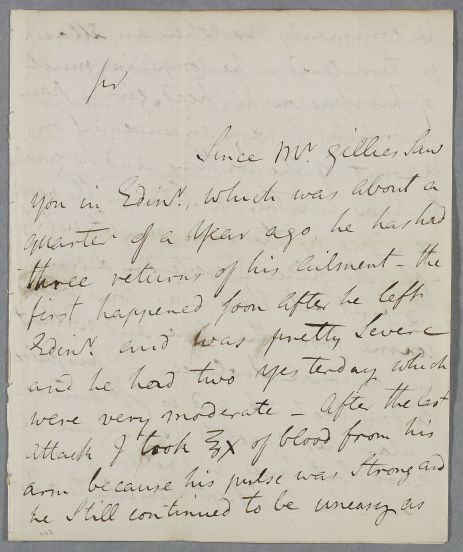 Sir
Since Mr. Gillies Saw
you in Edinr., which was about a
quarter of a Year ago, he has had
three returns of his ailment – the
first happened soon after he left
Edinr. and was pretty Severe
and he had two yesterday which
were very moderate – After the last
attack I took ℥x of blood from his
arm because his pulse was Strong and
he Still continued to be uneasy as